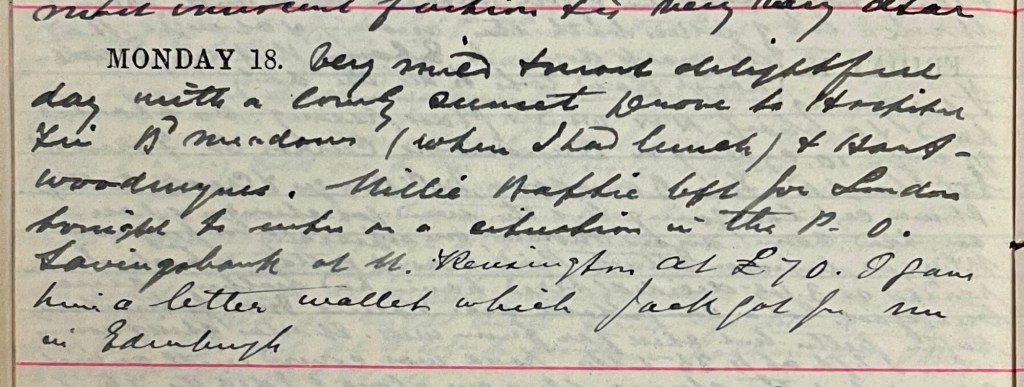 most innocent fashion & is very very dear
MONDAY 18. Very mild & most delightful
day with a lovely sunset Drove to Hospital
meadows (where I had lunch) &
Willie left for London
tonight to enter on a situation in the P. O.
Savingsbank at W. Kensington at £70. I gave
him a letter wallet which Jack got for me
in Edinburgh